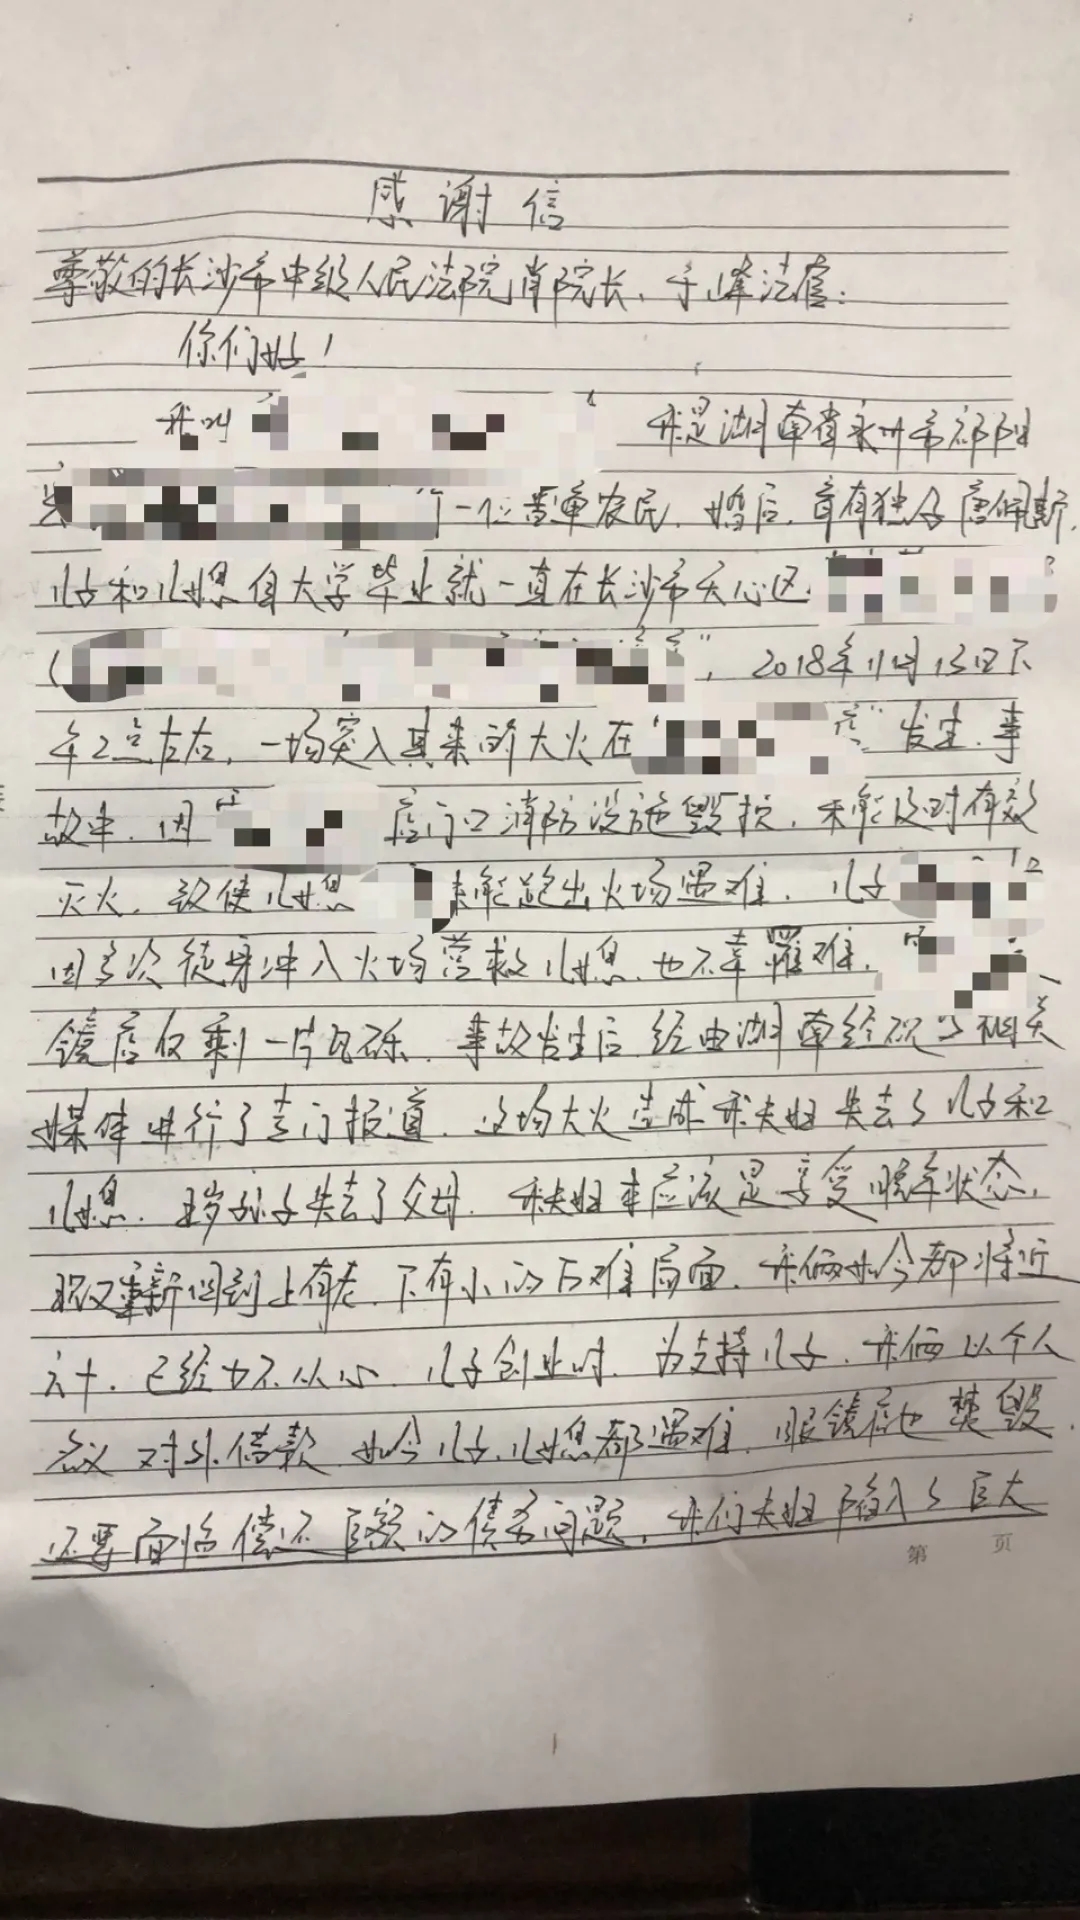 感谢信
尊敬的长沙市中级人民法院肖院长、于峰法官:
你们好!
我叫 我是湖南省永州市祁阳
一位普通农民.婚后.育有独子唐佩新.
儿子和儿媳自大学毕业就一直在长沙市天心区
( ", 2018年11月13日下
午2点左右,一场突入其来的大火在" 店"发生.事
故中.因" 店门口消防设施毁损,未能及时有效
灭火.致使儿媳 未能跑出火场遇难.儿子
因多次徒身冲入火场营救儿媳.也不幸罹难.
镜店仅剩一片瓦砾.事故发生后.经由湖南经视等相关
媒体进行了专门报道.这场大火造成我夫妇失去了儿子和
儿媳. 岁孙子失去了父母.我夫妇本应该是享受晚年状态,
现又重新回到上有老.下有小的 难局面.我俩如今都将近
六十.已经力不从心.儿子创业时.为支持儿子.我俩以个人
名义对外借款.如今儿子、儿媳都遇难.眼镜店也焚毁.
还要面临偿还巨额的债务问题,我们夫妇陷入了巨大
第 页